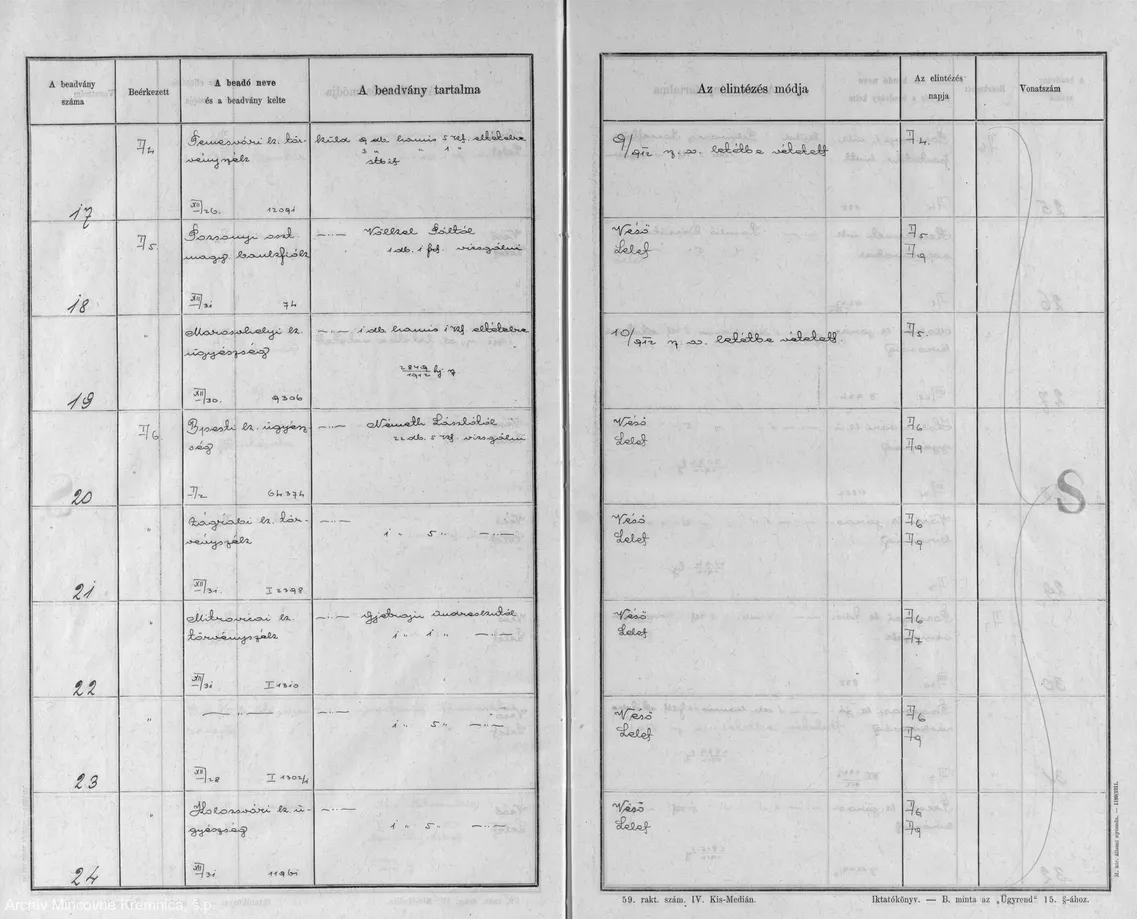 A beadvány
száma
Beérkezett
A beadó neve
és a beadvány kelte
A beadvány tartalma
Az elintézés módja
Az elintézés
napja
Vonatszám
17
I/4
Temesvári k. tör-
vényszék
XII/26. 12091
küld 9 db. hamis 5 kf. elítélve
3 " 1 "
9/912 n. sz. letétbe vétetett
I/4.
18
I/5.
Pozsonyi oszt.
magy. bankfiók
XII/31 74
—··— Páltól
1 db. 1 frt. vizsgálni
Véső
Lelef
I/5
I/9
19
"
Marosvhelyi k.
ügyészség
XII/30. 9306
—··— 1 db hamis 1 kf elítélve
2849/1912 bj
10/912 n. sz. letétbe vétetett.
I/5.
20
I/6
Bpesti k. ügyész-
ség
I/2 64374
—··— Németh Lászlótól
22 db. 5 kf. vizsgálni
Véső
Lelef
I/6
I/9
S
21
"
Zágrábi k. tör-
vényszék
XII/31. I 2398
—··—
1 " 5 " —··—
Véső
Lelef
I/6
I/9
22
"
Mitrovicai k.
törvényszék
XII/31 I 1310
—··—
1 " 1 " —··—
Véső
Lelef
I/6
I/7
23
"
—··—
XII/28 I 1302/1
—··—
1 " 5 " —··—
Véső
Lelef
I/6
I/9
24
"
Kolozsvári k. ü-
gyészség
XII/31 11961
—··—
1 " 5 " —··—
Véső
Lelef
I/6
I/9
59. rakt. szám. IV. Kis-Medián.
Iktatókönyv. — B. minta az „Ügyrend" 15. §-ához.
Archív Mincovne Kremnica, š.p.